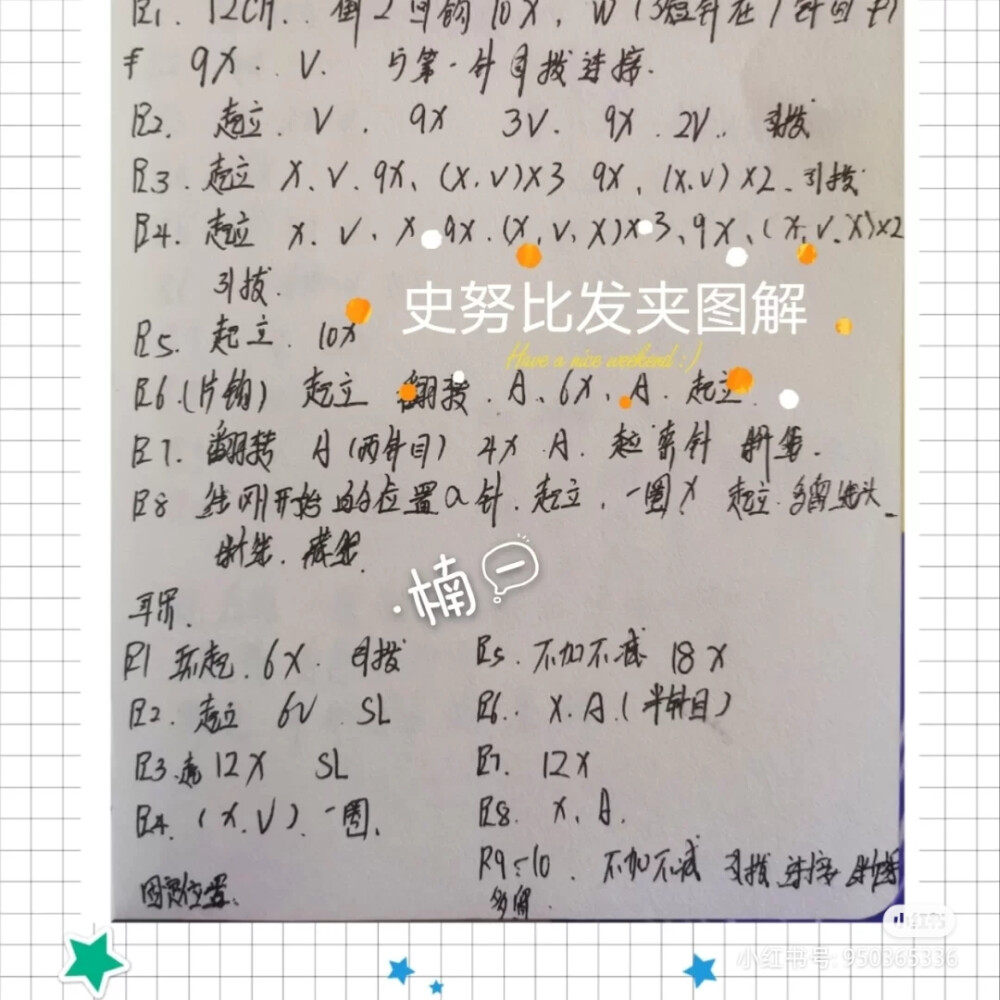 R1. 12CH.. 倒2回钩10X, W(3短针在1针目中)
9X. V. 与第一针引拔连接.
R2. 起立. V. 9X 3V. 9X. 2V. 引拔
R3. 起立 X. V. 9X. (X.V)X3 9X. (X.V)X2. 引拔
R4. 起立 X. V. X 9X. (X, V, X)X3. 9X. (X.V.X)X2
引拔.
史努比发夹图解
R5. 起立. 10X
Have a nice weekend :)
R6.(片钩) 起立 翻转. A. 6X. A. 起立.
R7. 翻转 A(两针目) 4X A. 起 针 断线.
R8 线刚开始的位置 针. 起立. 一圈X 起立. 多留线头
断线. 藏线.
·楠㊀
耳朵.
R1 环起. 6X. 引拔
R2. 起立 6V SL
R3. 起 12X SL
R4. (X.V). 一圈.
固定位置.
R5. 不加不减 18X
R6.. X.A.(半针目)
R7. 12X
R8. X. A.
R9~10. 不加不减 引拔 连接 断线
多留.
小红书
小红书号: 950365336